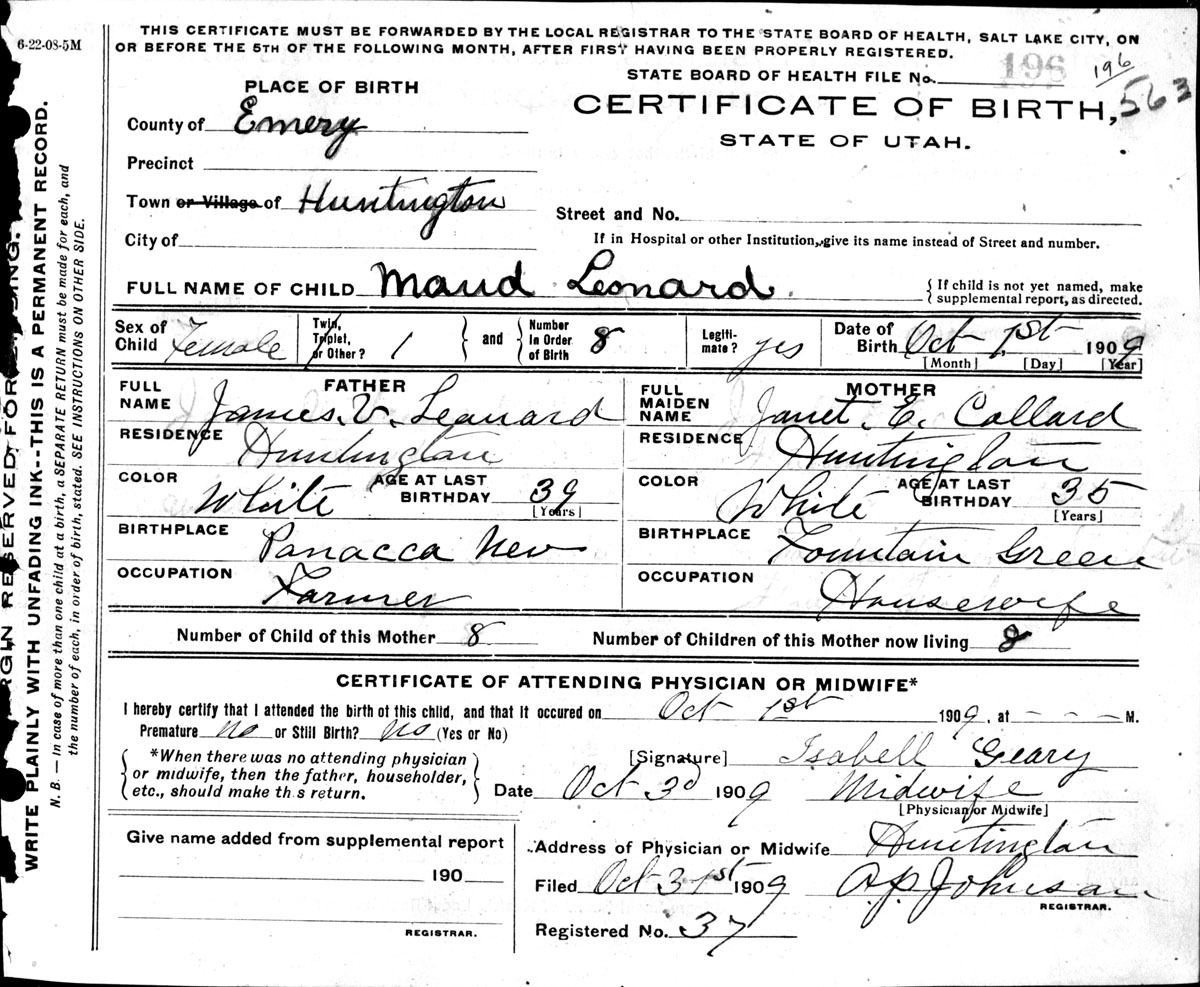 6-22-08-5M
THIS CERTIFICATE MUST BE FORWARDED BY THE LOCAL REGISTRAR TO THE STATE BOARD OF HEALTH, SALT LAKE CITY, ON
OR BEFORE THE 5TH OF THE FOLLOWING MONTH, AFTER FIRST HAVING BEEN PROPERLY REGISTERED.
STATE BOARD OF HEALTH FILE No. 196 196
PLACE OF BIRTH
CERTIFICATE OF BIRTH, 563
STATE OF UTAH.
County of Emery
Precinct
Town or Village of Huntington
Street and No.
City of
If in Hospital or other Institution, give its name instead of Street and number.
FULL NAME OF CHILD Maud Leonard
If child is not yet named, make
supplemental report, as directed.
Sex of Child Female
Twin, Triplet, or Other? 1
and
Number in Order of Birth 8
Legitimate? yes
Date of Birth Oct 1st 1909
[Month] [Day] [Year]
FATHER
FULL NAME James. V. Leanard
RESIDENCE Huntington
COLOR White AGE AT LAST BIRTHDAY 39
[Years]
BIRTHPLACE Panacca Nev
OCCUPATION Farmer
MOTHER
FULL MAIDEN NAME Janet. E. Collard
RESIDENCE Huntington
COLOR White AGE AT LAST BIRTHDAY 35
[Years]
BIRTHPLACE Fountain Green
OCCUPATION Housewife
Number of Child of this Mother 8 Number of Children of this Mother now living 8
CERTIFICATE OF ATTENDING PHYSICIAN OR MIDWIFE*
I hereby certify that I attended the birth of this child, and that it occured on Oct 1st 1909, at - - - M.
Premature No or Still Birth? No (Yes or No)
*When there was no attending physician
or midwife, then the father, householder,
etc., should make this return.
[Signature] Isabell Geary
Date Oct 3d 1909 Midwife
[Physician or Midwife]
Give name added from supplemental report
190
REGISTRAR.
Address of Physician or Midwife Huntington
Filed Oct 31st 1909 A.P. Johnson
REGISTRAR.
Registered No. 37
RGIN RESERVED FOR
WRITE PLAINLY WITH UNFADING INK--THIS IS A PERMANENT RECORD.
N. B. — In case of more than one child at a birth, a SEPARATE RETURN must be made for each, and
the number of each, in order of birth, stated. SEE INSTRUCTIONS ON OTHER SIDE.